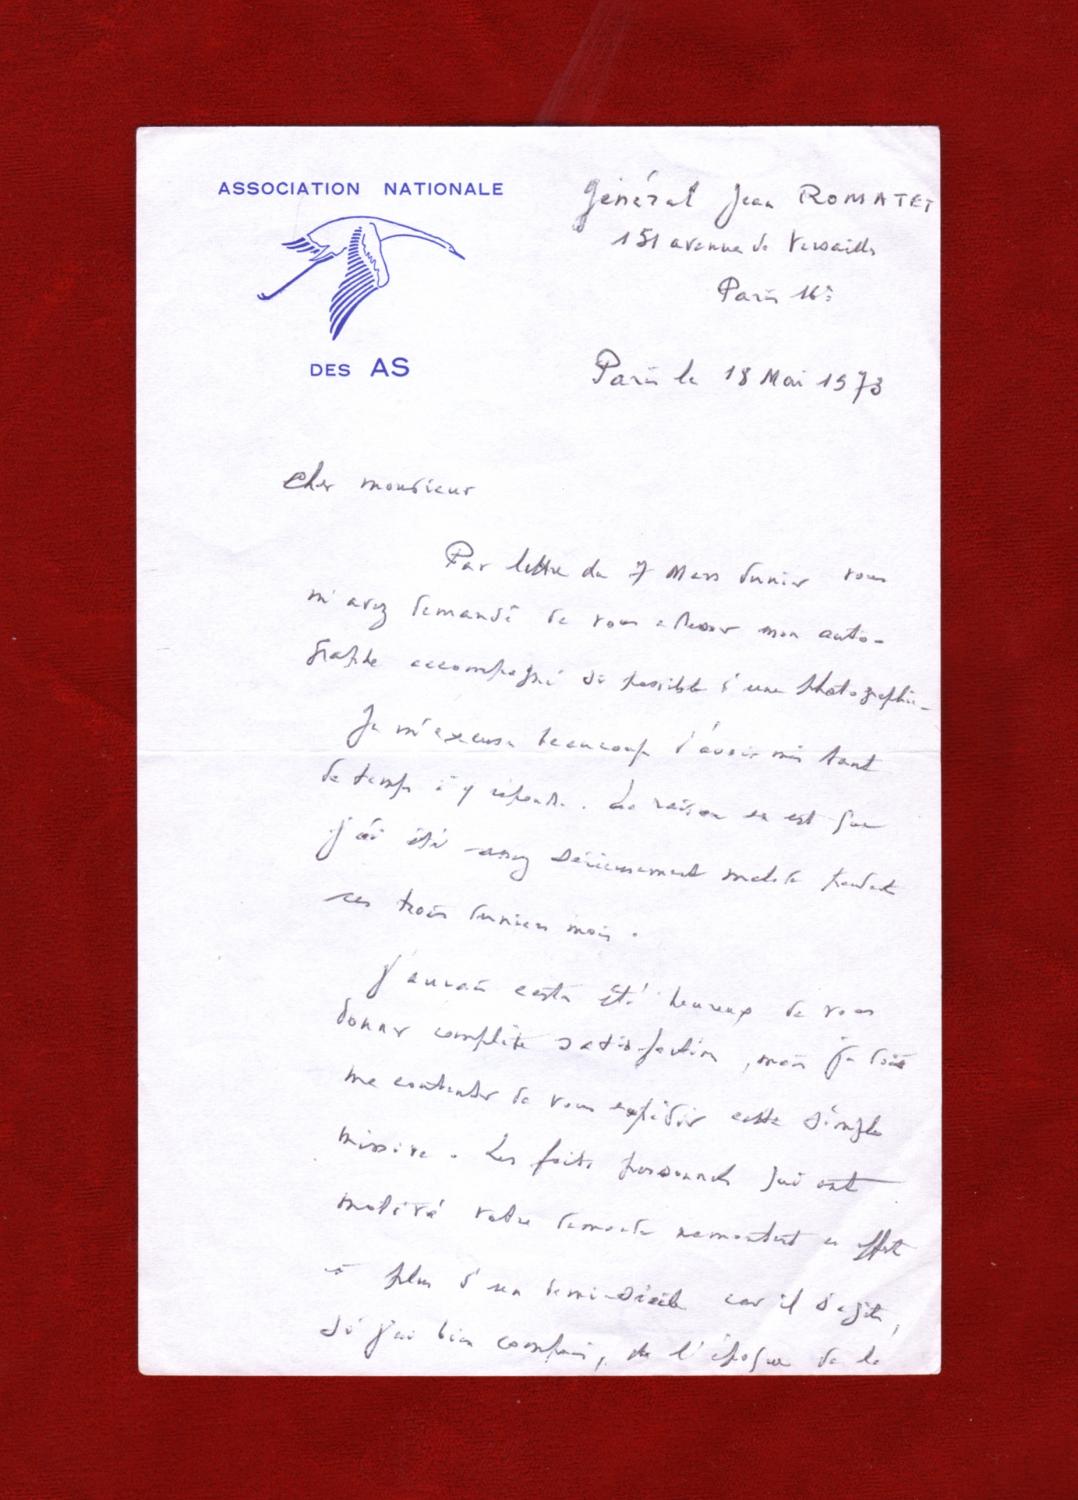 ASSOCIATION NATIONALE
DES AS
Général Jean ROMATET
151 avenue de Versailles
Paris 16e
Paris le 18 Mai 1973
Cher monsieur
Par lettre du 7 Mars dernier vous
m'avez demandé de vous adresser mon auto-
graphe accompagné si possible d'une photographie.
Je m'excuse beaucoup d'avoir mis tant
de temps à y répondre. La raison en est que
j'ai été assez sérieusement malade pendant
ces trois derniers mois.
J'aurais certes été heureux de vous
donner complète satisfaction, mais je dois
me contenter de vous expédier cette simple
missive. Les faits personnels qui ont
motivé votre demande remontent en effet
à plus d'un demi-siècle car il s'agit,
si j'ai bien compris, de l'époque de la